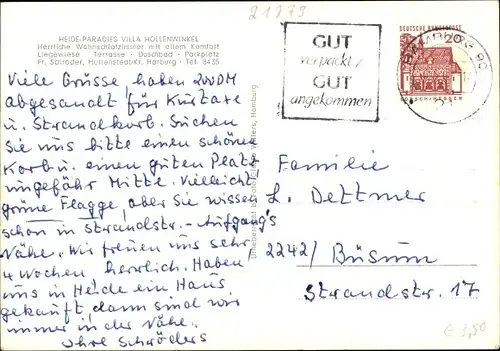 21379
HEIDE-PARADIES VILLA HOLLENWINKEL
Herrliche Wohnschlafzimmer mit allem Komfort
Liegewiese Terrasse - Duschbad - Parkplatz
Fr. Schröder, Hollenstedt/Kr. Harburg - Tel. 8435
Viele Grüsse, haben 200DM
abgesandt für Kurtaxe
u. Strandkorb. Suchen
Sie uns bitte einen schönen
Korb u. einen guten Platz
ungefähr Mitte. Vielleicht
grüne Flagge, aber Sie wissen
schon in Strandstr.-Aufgang's
Nähe. Wir freuen uns sehr,
4 Wochen herrlich. Haben
uns in Heide ein Haus
gekauft, dann sind wir
immer in der Nähe.
Ihre Schröders
GUT
verpackt/
GUT
angekommen
HAMBURG 90
DEUTSCHE BUNDESPOST
20
Familie
L. Dettmer
2242/ Büsum
Strandstr. 17
€ 3,50